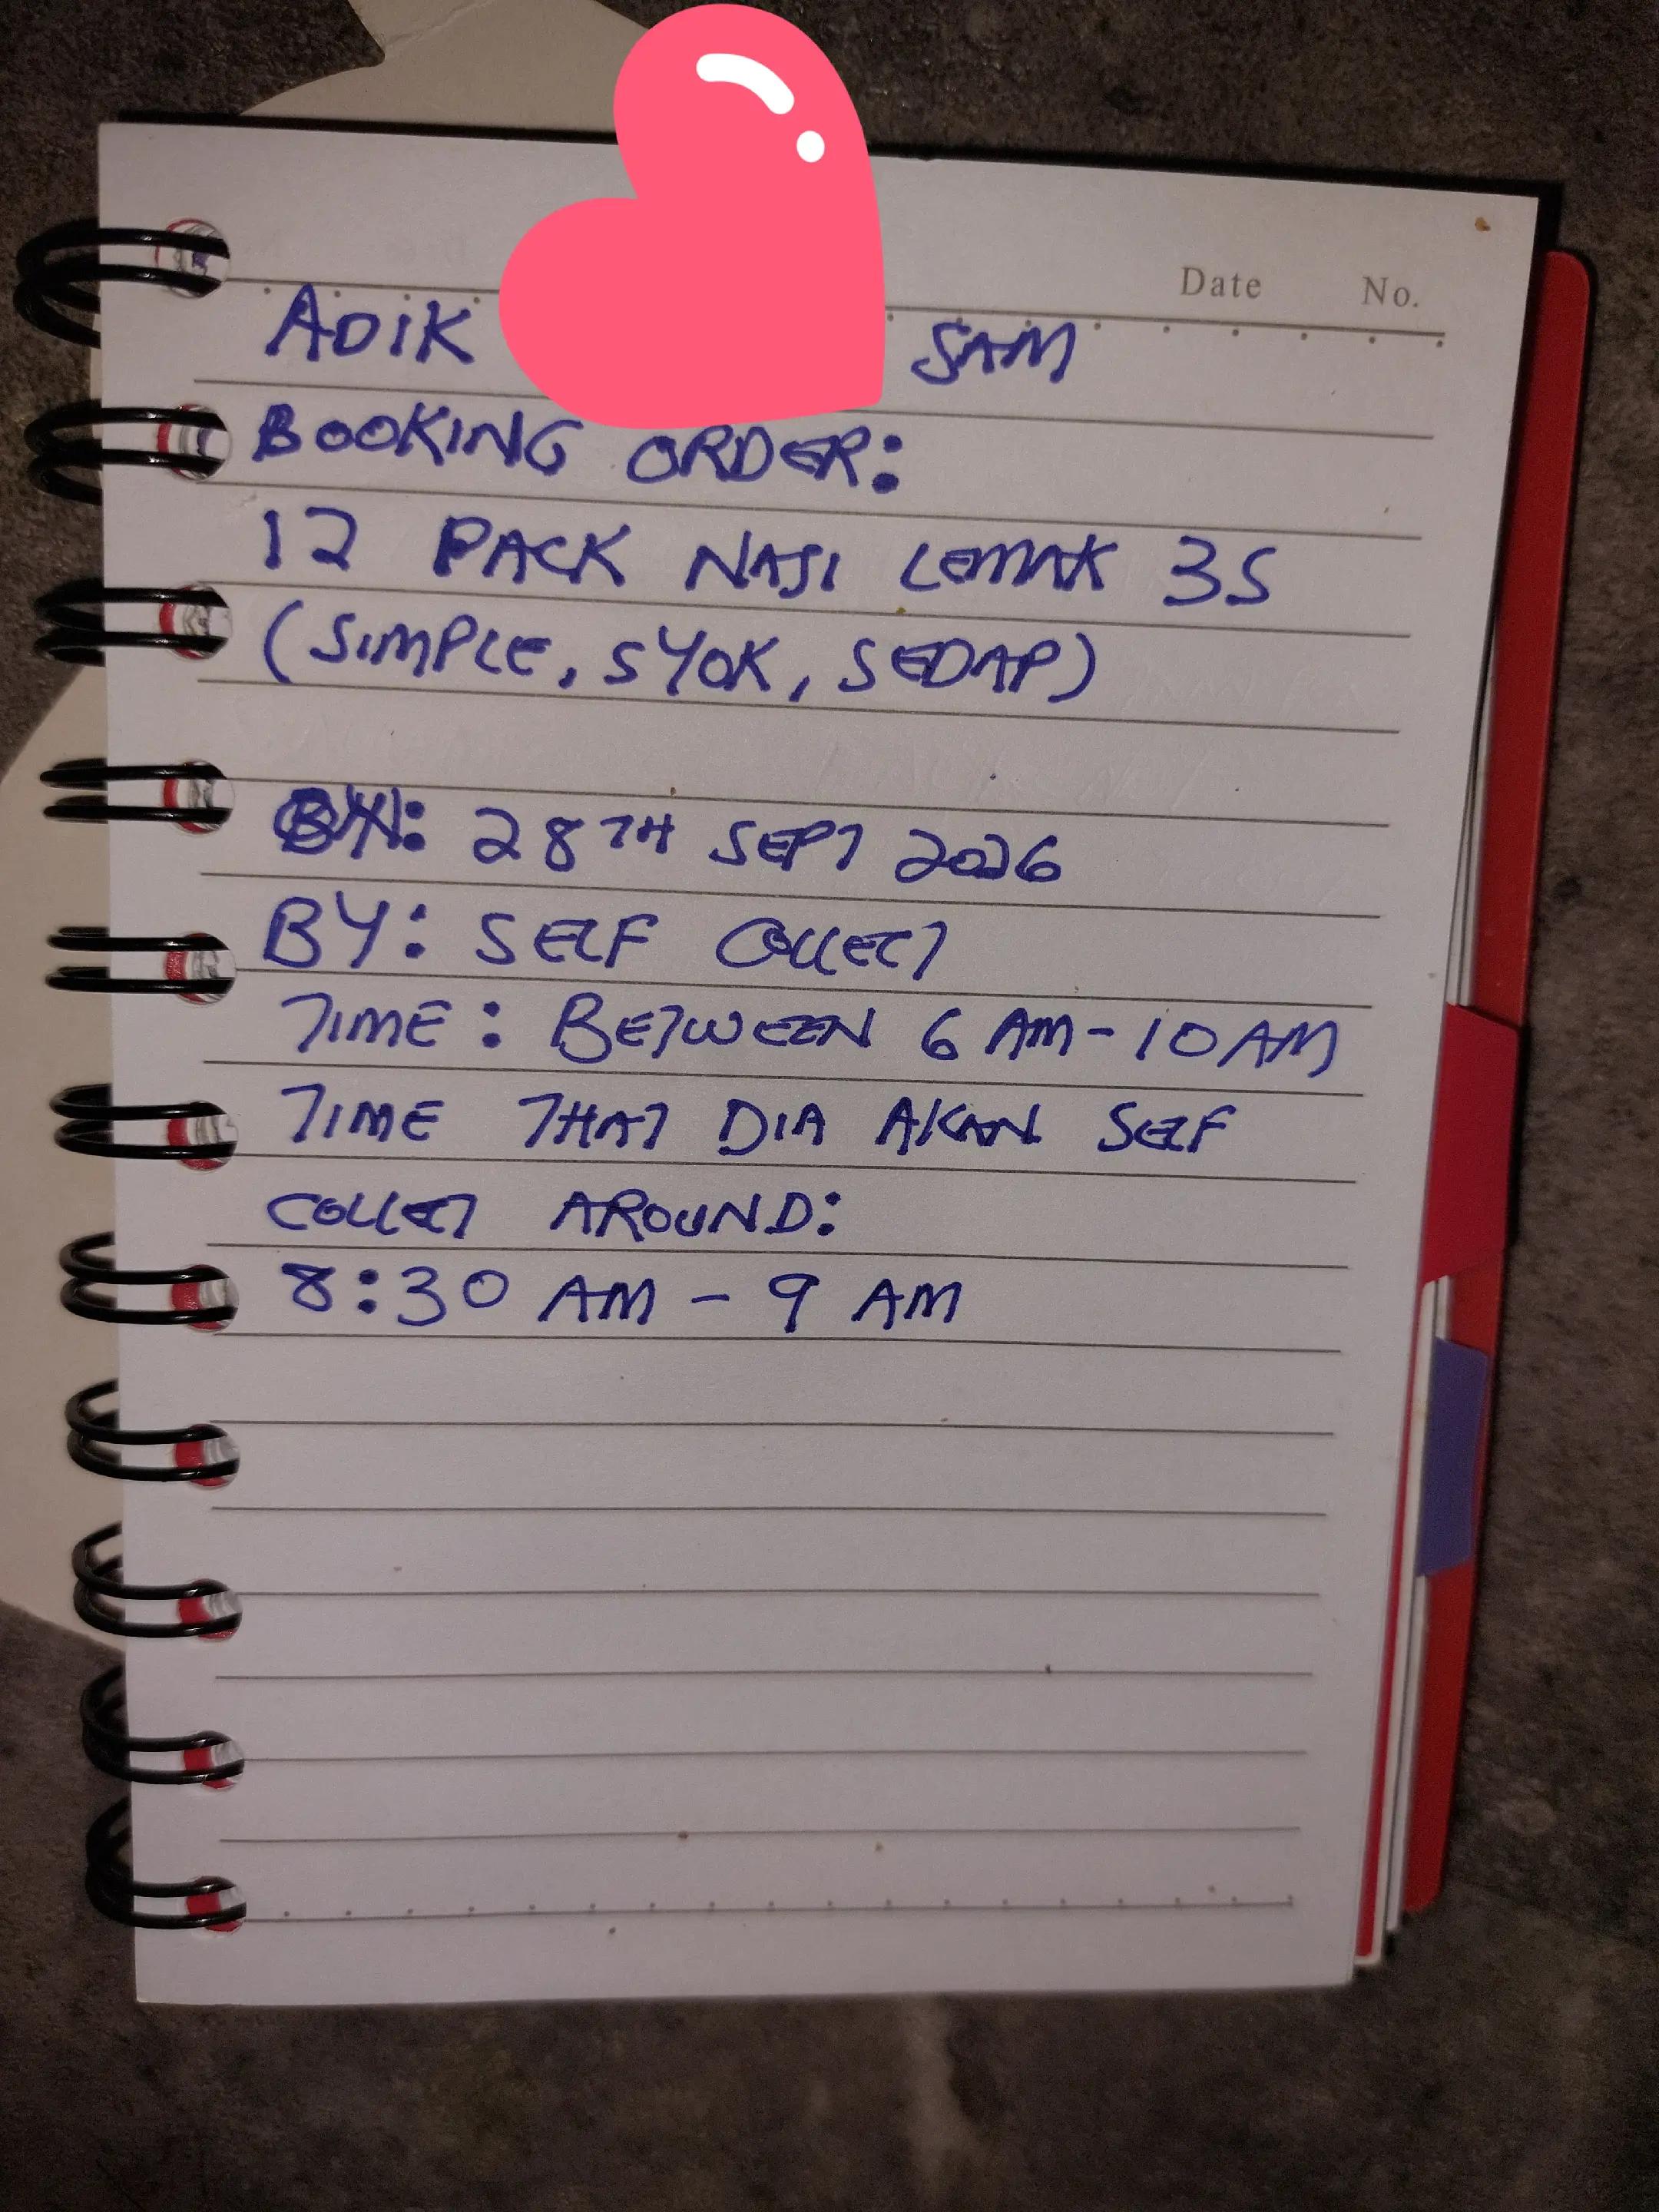 Date No.
ADIK SAM
BOOKING ORDER:
12 PACK NASI LEMAK 3S
(SIMPLE, SYOK, SEDAP)
28TH SEPT 2026
BY: SELF COLLECT
TIME: BETWEEN 6 AM-10 AM
TIME THAT DIA AKAN SELF
COLLECT AROUND:
8:30 AM - 9 AM